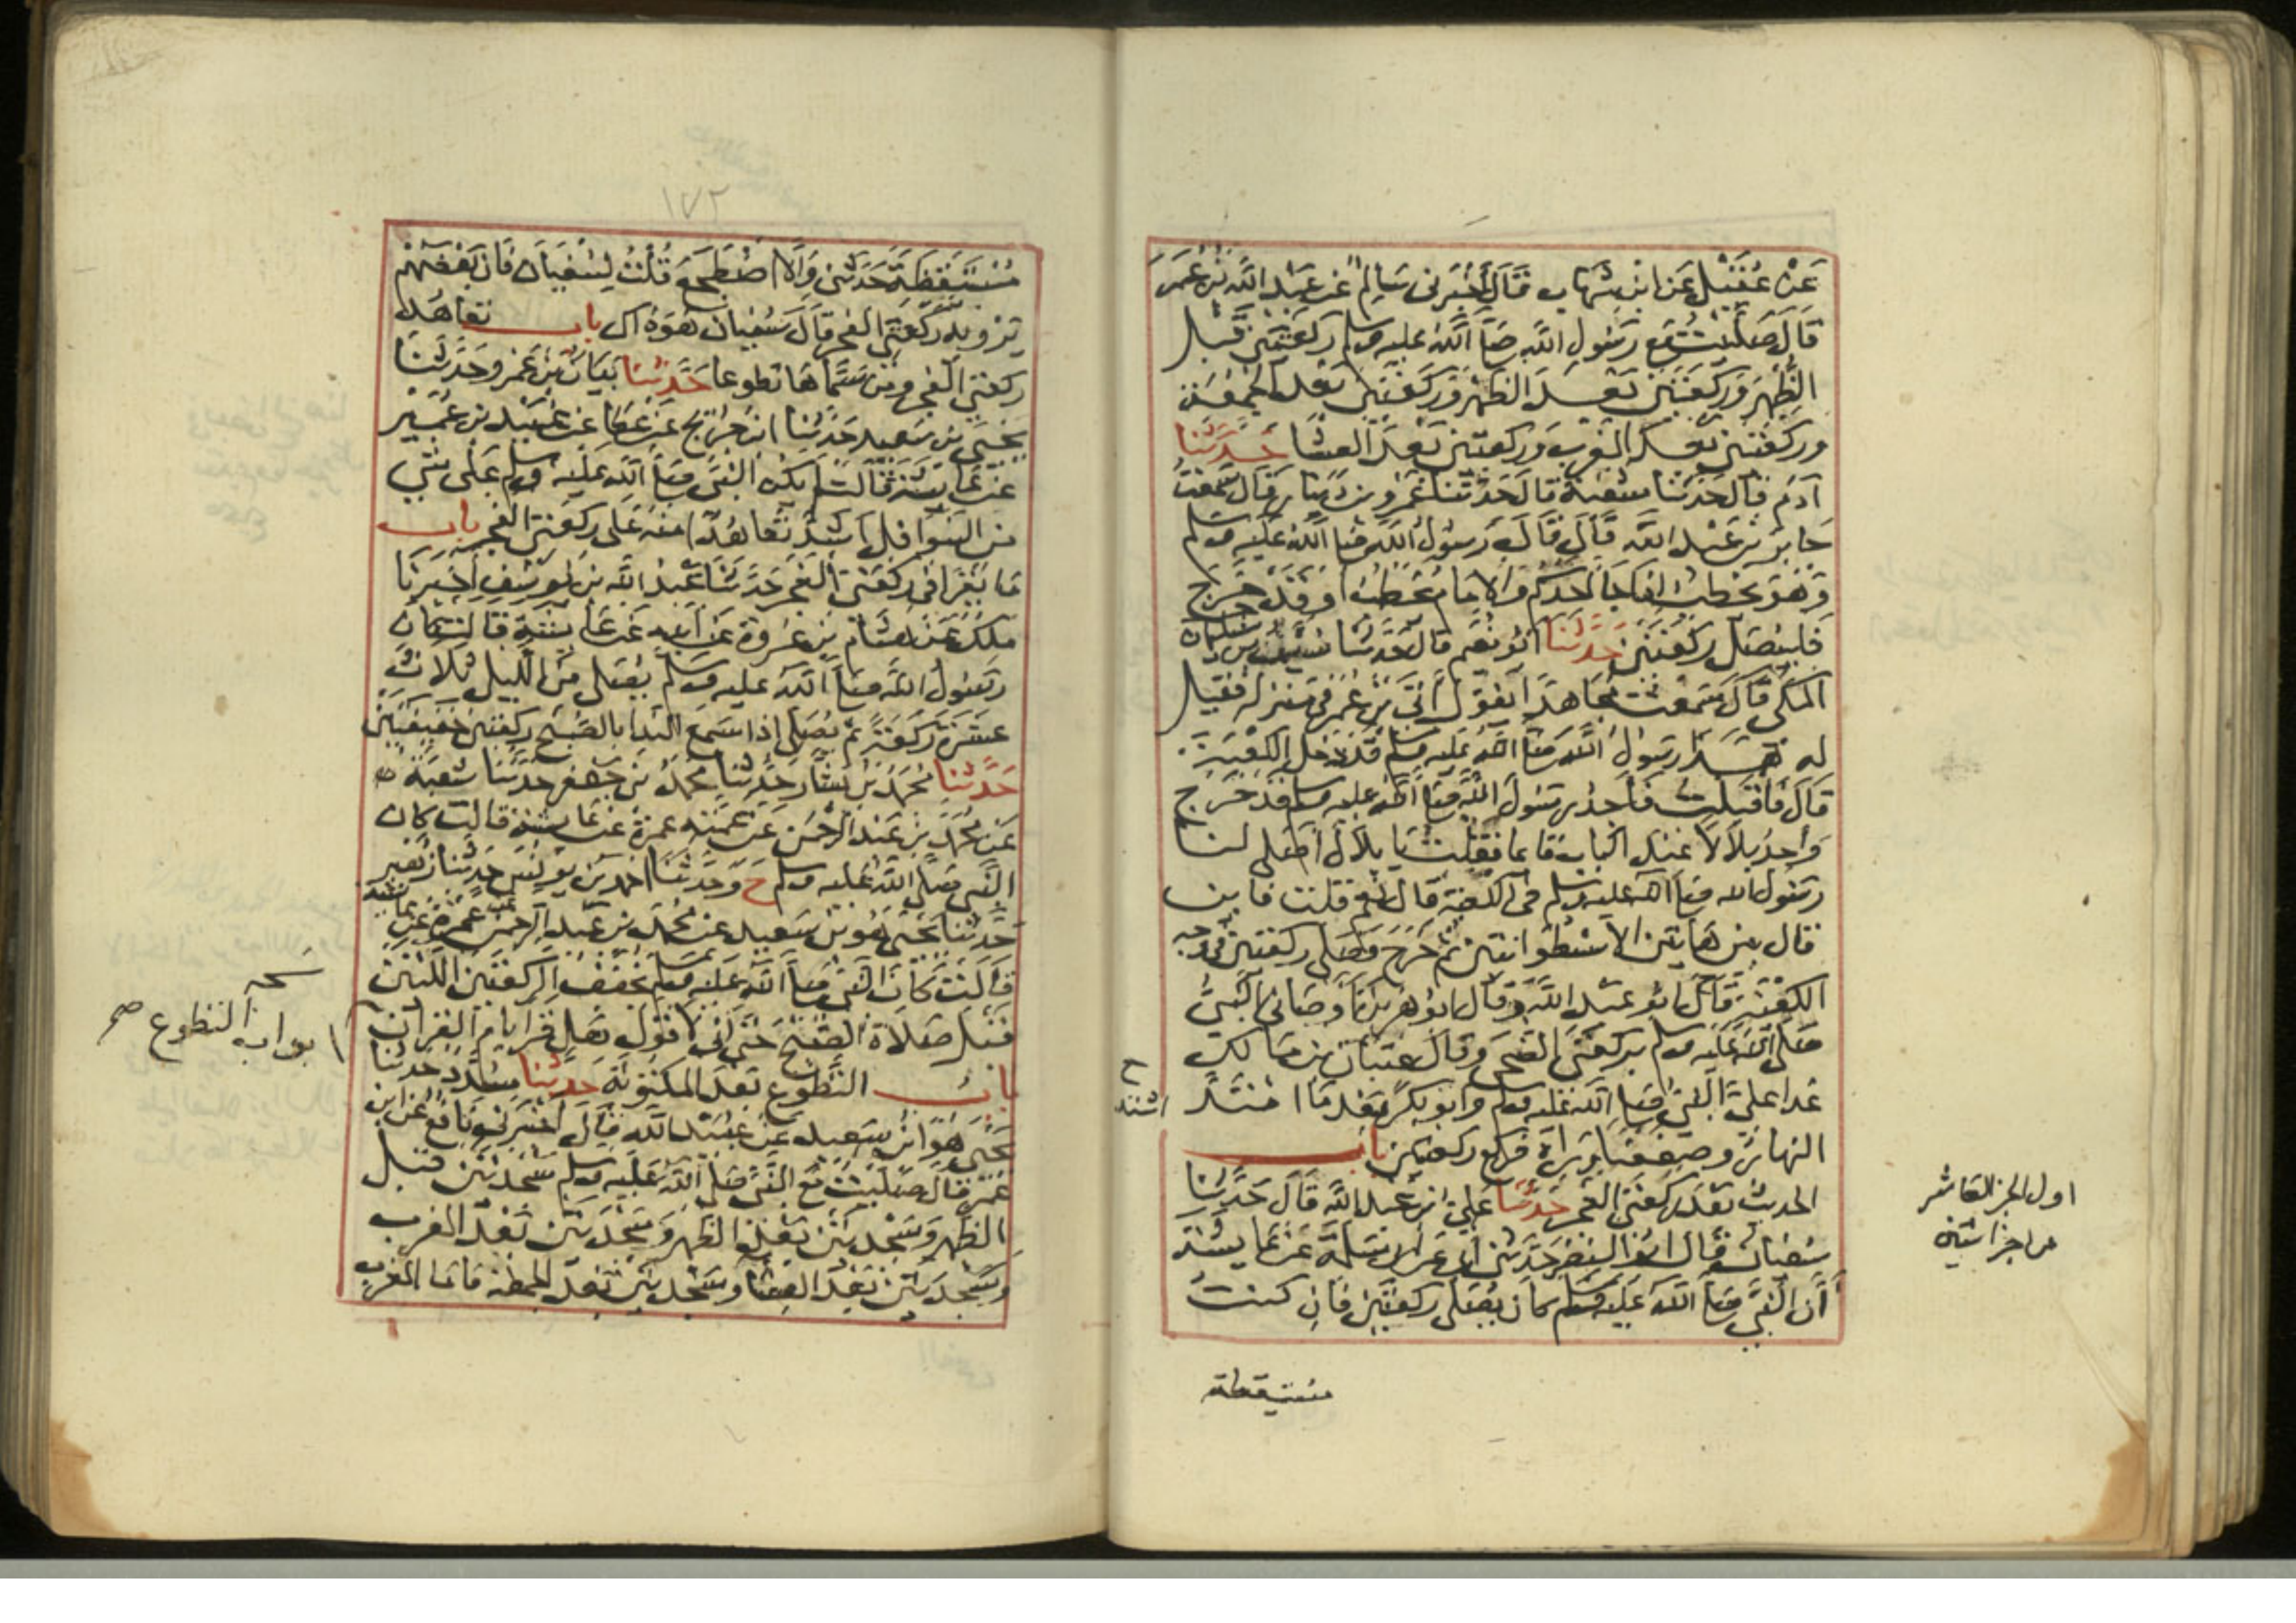 عَنْ عُقَيْلٍ عَنِ ابْنِ شِهَابٍ قَالَ أَخْبَرَنِي سَالِمٌ عَنْ عَبْدِ اللَّهِ بْنِ عُمَرَ
قَالَ صَلَّيْتُ مَعَ رَسُولِ اللَّهِ صَلَّى اللَّهُ عليه وسلم رَكْعَتَيْنِ قَبْلَ
الظُّهْرِ وَرَكْعَتَيْنِ بَعْدَ الظُّهْرِ وَرَكْعَتَيْنِ بَعْدَ الْجُمُعَةِ
وَرَكْعَتَيْنِ بَعْدَ الْمَغْرِبِ وَرَكْعَتَيْنِ بَعْدَ الْعِشَا حَدَّثَنَا
آدَمُ قَالَ حَدَّثَنَا شُعْبَةُ قَالَ حَدَّثَنَا عَمْرُو بْنُ دِينَارٍ قَالَ سَمِعْتُ
جَابِرَ بْنَ عَبْدِ اللَّهِ قَالَ قَالَ رَسُولُ اللَّهِ صَلَّى اللَّهُ عَلَيْهِ وسلم
وَهُوَ يَخْطُبُ إذا جَا أَحَدُكُمْ وَالْإِمَامُ يَخْطُبُ أَوْ قَدْ خَرَجَ
فَلْيُصَلِّ رَكْعَتَيْنِ حَدَّثَنَا أَبُو نُعَيْمٍ قَالَ حَدَّثَنَا سَيْفُ بن سُلَيْمَانَ
المكي قَالَ سَمِعْتُ مُجَاهِدًا يَقُولُ أُتِيَ بْنُ عُمَرَ فِي مَنْزِلِهِ فَقِيلَ
له هَذَا رَسُولُ اللَّهِ صَلَّى اللَّهُ عَلَيْهِ وسلم قَدْ دَخَلَ الْكَعْبَةَ
قَالَ فَأَقْبَلْتُ فَأَجِدُ رَسُولَ اللَّهِ صَلَّى اللَّهُ عليه وسلم قَدْ خَرَجَ
وَأَجِدُ بِلَالًا عِنْدَ الْبَابِ قَائِمًا فَقُلْتُ يَا بِلَالُ أَصَلَّى لنا
رَسُولُ الله صَلَّى الله عليه وسلم في الكعبة قال نَعَمْ قلت فأين
قال بين هَاتَيْنِ الْأُسْطُوَانَتَيْنِ ثُمَّ خَرَجَ فَصَلَّى رَكْعَتَيْنِ فِي وجه
الكعبة قَالَ أبو عَبْدِ اللَّهِ وقَالَ أبو هُرَيْرَةَ أَوْصَانِي النَّبِيُّ
صَلَّى اللَّهُ عَلَيْهِ وسلم بركعتي الضُّحَى وَقَالَ عِتْبَانُ بْنُ مَالِكٍ
غدا عَلَيَّ النَّبِيُّ صَلَّى اللَّهُ عَلَيْهِ وسلم وَأَبُو بَكْرٍ بَعْدَ مَا امْتَدَّ
اشتد ح
النهار وصففنا وَرَاهُ فركع ركعتين باب
الحديث بَعْدَ رَكْعَتَيِ الْفَجْرِ حَدَّثَنَا عَلِيُّ ابْنُ عبد اللَّهِ قَالَ حَدَّثَنَا
سُفْيَانُ قَالَ أَبُو النَّضْرِ حَدَّثَنِي أَبِي عَنْ أَبِي سَلَمَةَ عَنْ عَائِشَةَ
أَنَّ النَّبِيَّ صَلَّى اللَّهُ عَلَيْهِ وسلم كَانَ يُصَلِّي رَكْعَتَيْنِ فَإِنْ كُنْتُ
مستيقظة
اول الجز العاشر
من اجزا ستين
١٧٢
مُسْتَيْقِظَةً حَدَّثَنِي وَإِلَّا اضْطَجَعَ قُلْتُ لِسُفْيَانَ فَإِنَّ بَعْضَهُمْ
يَرْوِيهِ رَكْعَتَيِ الْفَجْرِ قَالَ سُفْيَانُ هُوَ ذاك باب تعاهد
ركعتي الفجر ومن سَمَّاهَا تطوعا حَدَّثَنَا بَيَانُ بْنُ عَمْرٍو حَدَّثَنَا
يَحْيَى بْنُ سَعِيدٍ حَدَّثَنَا ابْنُ جُرَيْجٍ عَنْ عَطَا عَنْ عُبَيْدِ بْنِ عُمَيْرٍ
عَنْ عَائِشَةَ قَالَتْ لم يكن النَّبِيُّ صَلَّى اللَّهُ عَلَيْهِ وسلم عَلَى شَيٍ
مِنَ النَّوَافِلِ أَشَدَّ تَعَاهُدًا مِنْهُ عَلَى رَكْعَتَيِ الْفَجْرِ باب
مَا يُقْرَا فِي رَكْعَتَيِ الْفَجْرِ حَدَّثَنَا عَبْدُ اللَّهِ بْنُ يُوسُفَ أَخْبَرَنَا
مَلِكٌ عَنْ هِشَامِ بْنِ عُرْوَةَ عَنْ أَبِيهِ عَنْ عَائِشَةَ قَالَتْ كَانَ
رَسُولُ اللَّهِ صَلَّى اللَّهُ عليه وسلم يُصَلِّي مِنَ اللَّيْلِ ثَلَاثَ
عَشْرَةَ رَكْعَةً ثُمَّ يُصَلِّي إِذَا سَمِعَ النِّدَا بِالصُّبْحِ رَكْعَتَيْنِ خَفِيفَتَيْنِ
حَدَّثَنَا مُحَمَّدُ بْنُ بَشَّارٍ حَدَّثَنَا مُحَمَّدُ بْنُ جَعْفَرٍ حَدَّثَنَا شُعْبَةُ
عَنْ مُحَمَّدِ بْنِ عَبْدِ الرَّحْمَنِ عَنْ عَمَّتِهِ عَمْرَةَ عَنْ عَائِشَةَ قَالَتْ كان
النَّبِيُّ صَلَّى اللَّهُ عَلَيْهِ وسلم ح وَحَدَّثَنَا أَحْمَدُ بْنُ يُونُسَ حَدَّثَنَا زُهَيْرٌ
حَدَّثَنَا يَحْيَى هُوَ بْنُ سَعِيدٍ عَنْ مُحَمَّدِ بْنِ عَبْدِ الرَّحْمَنِ عَنْ عَمْرَةَ عَنْ عَائِشَةَ
قَالَتْ كَانَ النَّبِيُّ صَلَّى اللَّهُ عَلَيْهِ وسلم يُخَفِّفُ الرَّكْعَتَيْنِ اللَّتَيْنِ
قَبْلَ صَلَاةِ الصُّبْحِ حَتَّى إِنِّي لَأَقُولُ هَلْ قَرَا بِأُمِّ الْقُرْآنِ
نسخه
ابواب التطوع صح
باب التَّطَوُّعِ بَعْدَ الْمَكْتُوبَةِ حَدَّثَنَا مُسَدَّدٌ حَدَّثَنَا
يَحْيَى هُوَ ابْنُ سَعِيدٍ عَنْ عُبَيْدِ اللَّهِ قَالَ أَخْبَرَنِي نَافِعٌ عَنِ ابْنِ
عُمَرَ قَالَ صَلَّيْتُ مَعَ النَّبِيِّ صَلَّى اللَّهُ عَلَيْهِ وسلم سَجْدَتَيْنِ قَبْلَ
الظُّهْرِ وَسَجْدَتَيْنِ بَعْدَ الظُّهْرِ وَسَجْدَتَيْنِ بَعْدَ الْمَغْرِبِ
وَسَجْدَتَيْنِ بَعْدَ الْعِشَا وَسَجْدَتَيْنِ بَعْدَ الْجُمُعَةِ فَأَمَّا الْمَغْرِبُ